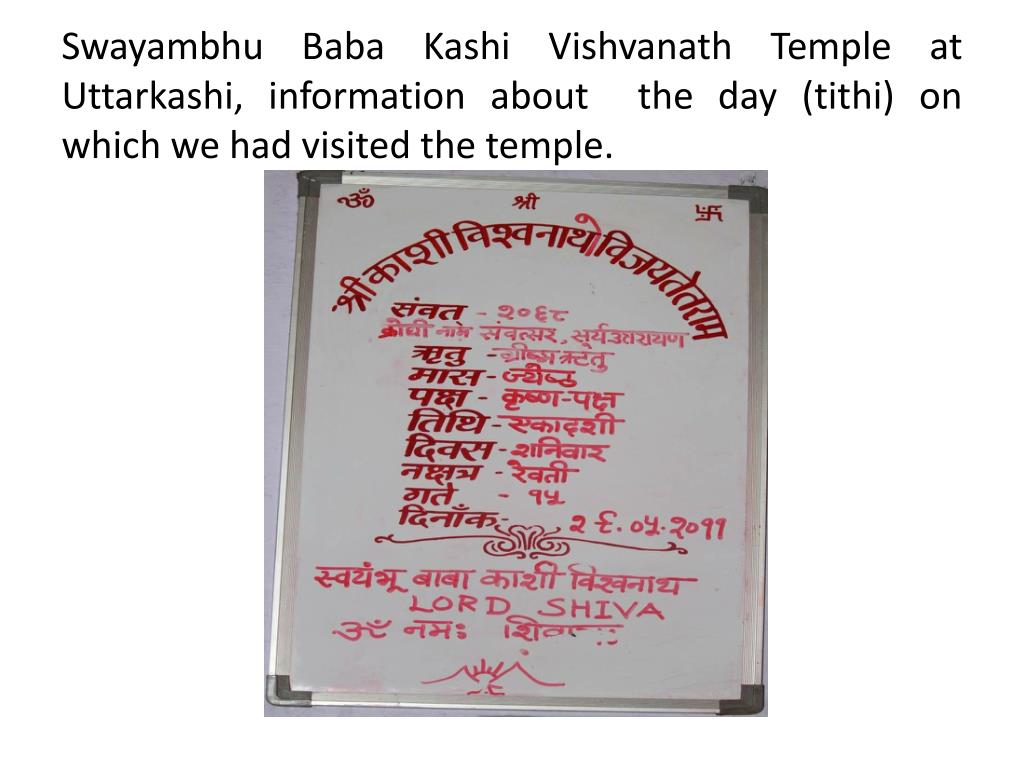 Swayambhu Baba Kashi Vishvanath Temple at
Uttarkashi, information about the day (tithi) on
which we had visited the temple.
ॐ श्री 卐
श्री काशी विश्वनाथो विजयतेतराम
संवत् - २०६८
क्रोधी नाम संवत्सर, सूर्य उत्तरायण
ऋतु - ग्रीष्म ऋतु
मास - ज्येष्ठ
पक्ष - कृष्ण-पक्ष
तिथि - एकादशी
दिवस - शनिवार
नक्षत्र - रेवती
गते - १५
दिनाँक - २८.०५.२०११
स्वयंभू बाबा काशी विश्वनाथ
LORD SHIVA
ॐ नमः